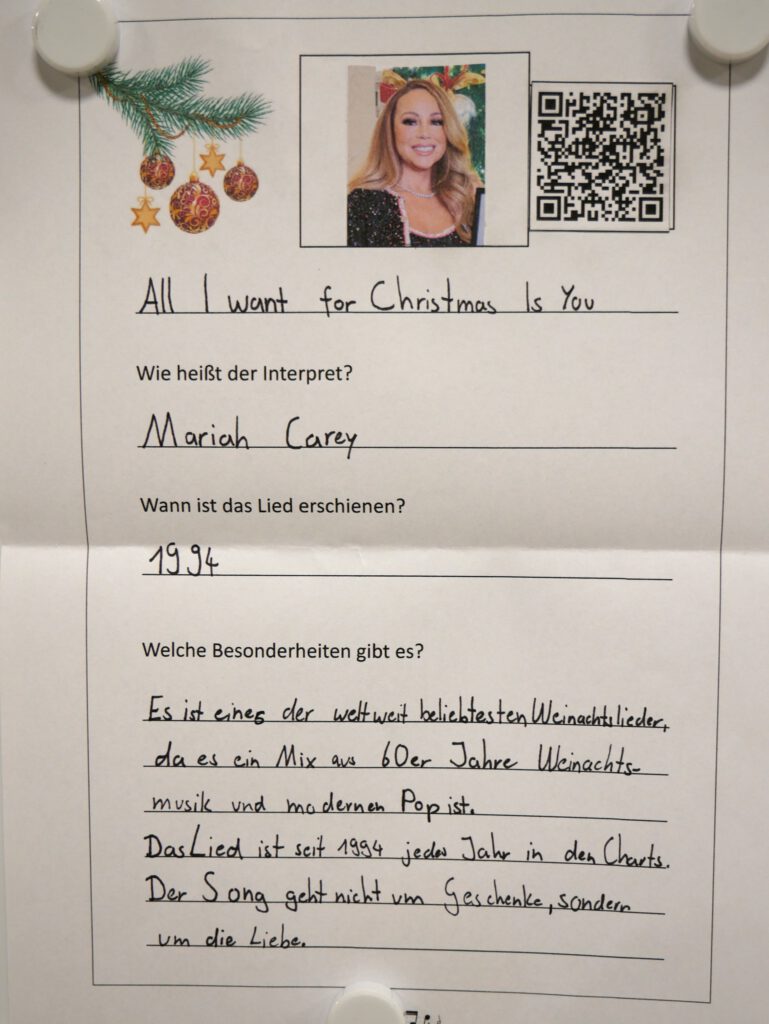 All I want for Christmas Is You
Wie heißt der Interpret?
Mariah Carey
Wann ist das Lied erschienen?
1994
Welche Besonderheiten gibt es?
Es ist eines der weltweit beliebtesten Weinachtslieder,
da es ein Mix aus 60er Jahre Weinachts-
musik und modernen Pop ist.
Das Lied ist seit 1994 jedes Jahr in den Charts.
Der Song geht nicht um Geschenke, sondern
um die Liebe.